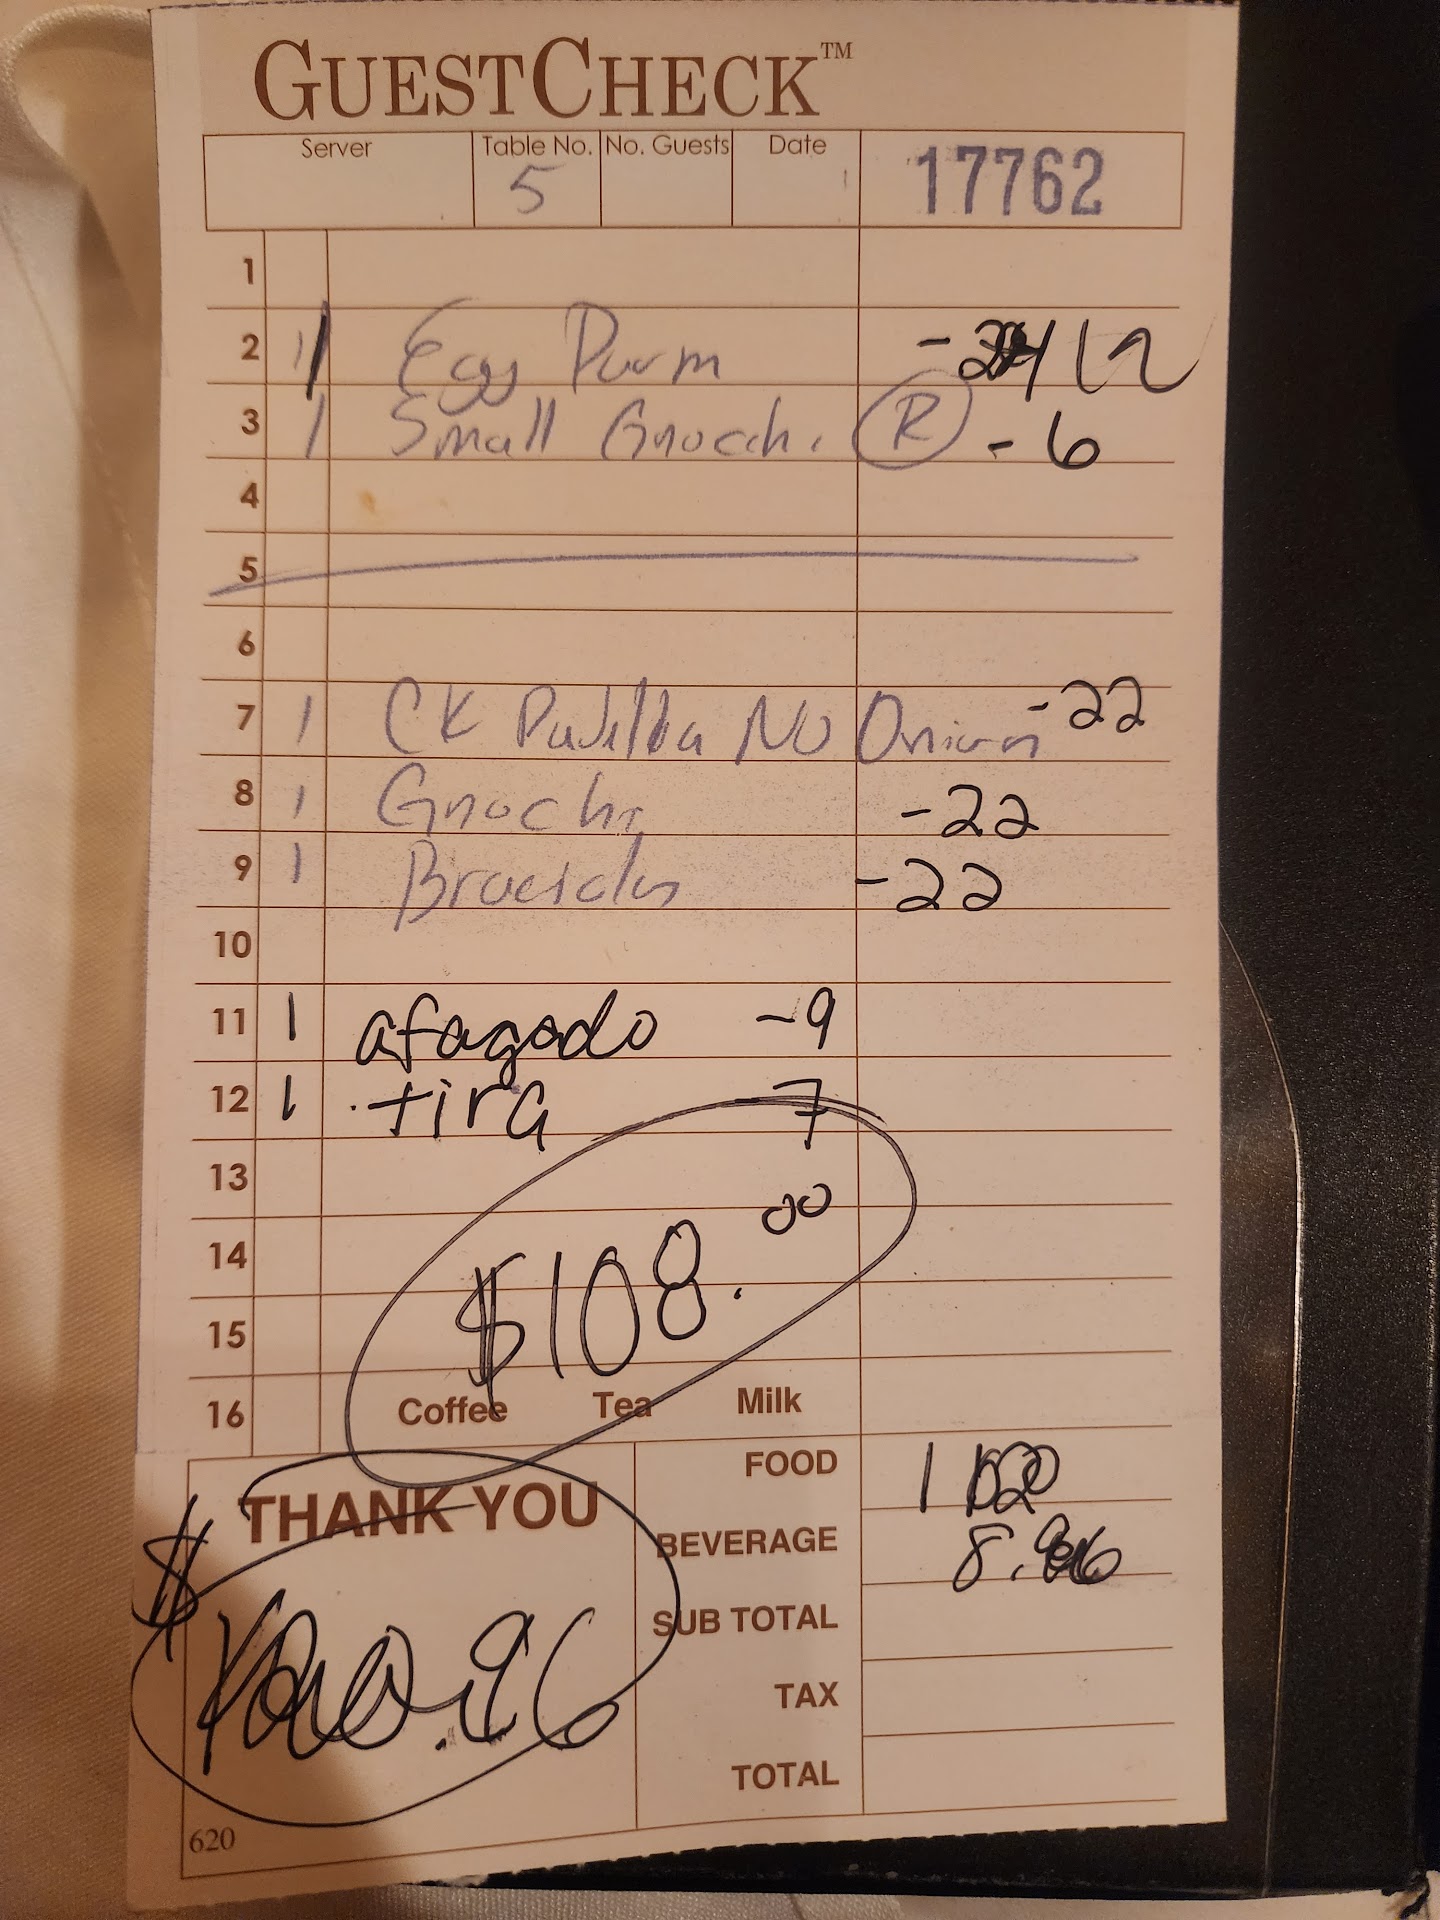 GUESTCHECK™
Server Table No. No. Guests Date 17762
5
1
2 1 Egg Parm
3 1 Small Gnocchi R - 6
4
5
6
7 1 CK No Onion -22
8 1 Gnochi -22
9 1 -22
10
11 1 afagodo -9
12 1 tira -7
13
14 $108.00
15
16 Coffee Tea Milk
FOOD
THANK YOU
BEVERAGE
SUB TOTAL
TAX
TOTAL
620